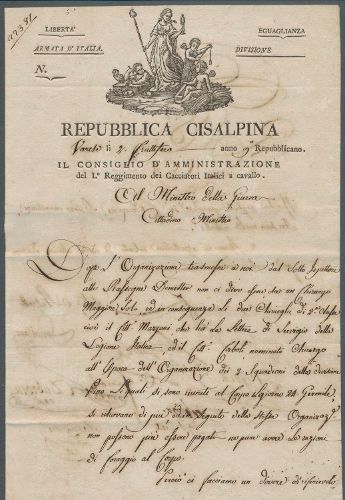 LIBERTA'
EGUAGLIANZA
ARMATA D'ITALIA.
DIVISIONE
N.
REPUBBLICA CISALPINA
Varese li 2. Fruttifero anno 9 Repubblicano.
IL CONSIGLIO D'AMMINISTRAZIONE
del I.º Reggimento dei Cacciatori Italici a cavallo.
Al Ministro della Guerra
Cittadino Ministro
Dopo l'Organizazione trasmessa a noi dal Sotto Ispettore
alle Rassegne non ci deve essere che un Chirurgo
Maggiore Solo, ed in conseguenza li due Chirurghi di 2ª Classe
cioè il Citt. Mazzoni che hà la Lettera di Servizio della
Legione Italica, ed il Citt. Caboli nominato Chirurgo
all'Epoca dell'Organizazione dei 2 Squadroni della
Pino, i quali si sono uniti al Corpo il giorno 28 Germile,
si ritrovano di più in seguito della stessa Organizaz.
non possono più essere pagati, ne pure avere le razioni
di foraggio al Corpo.
Perciò ci facciamo un dovere di